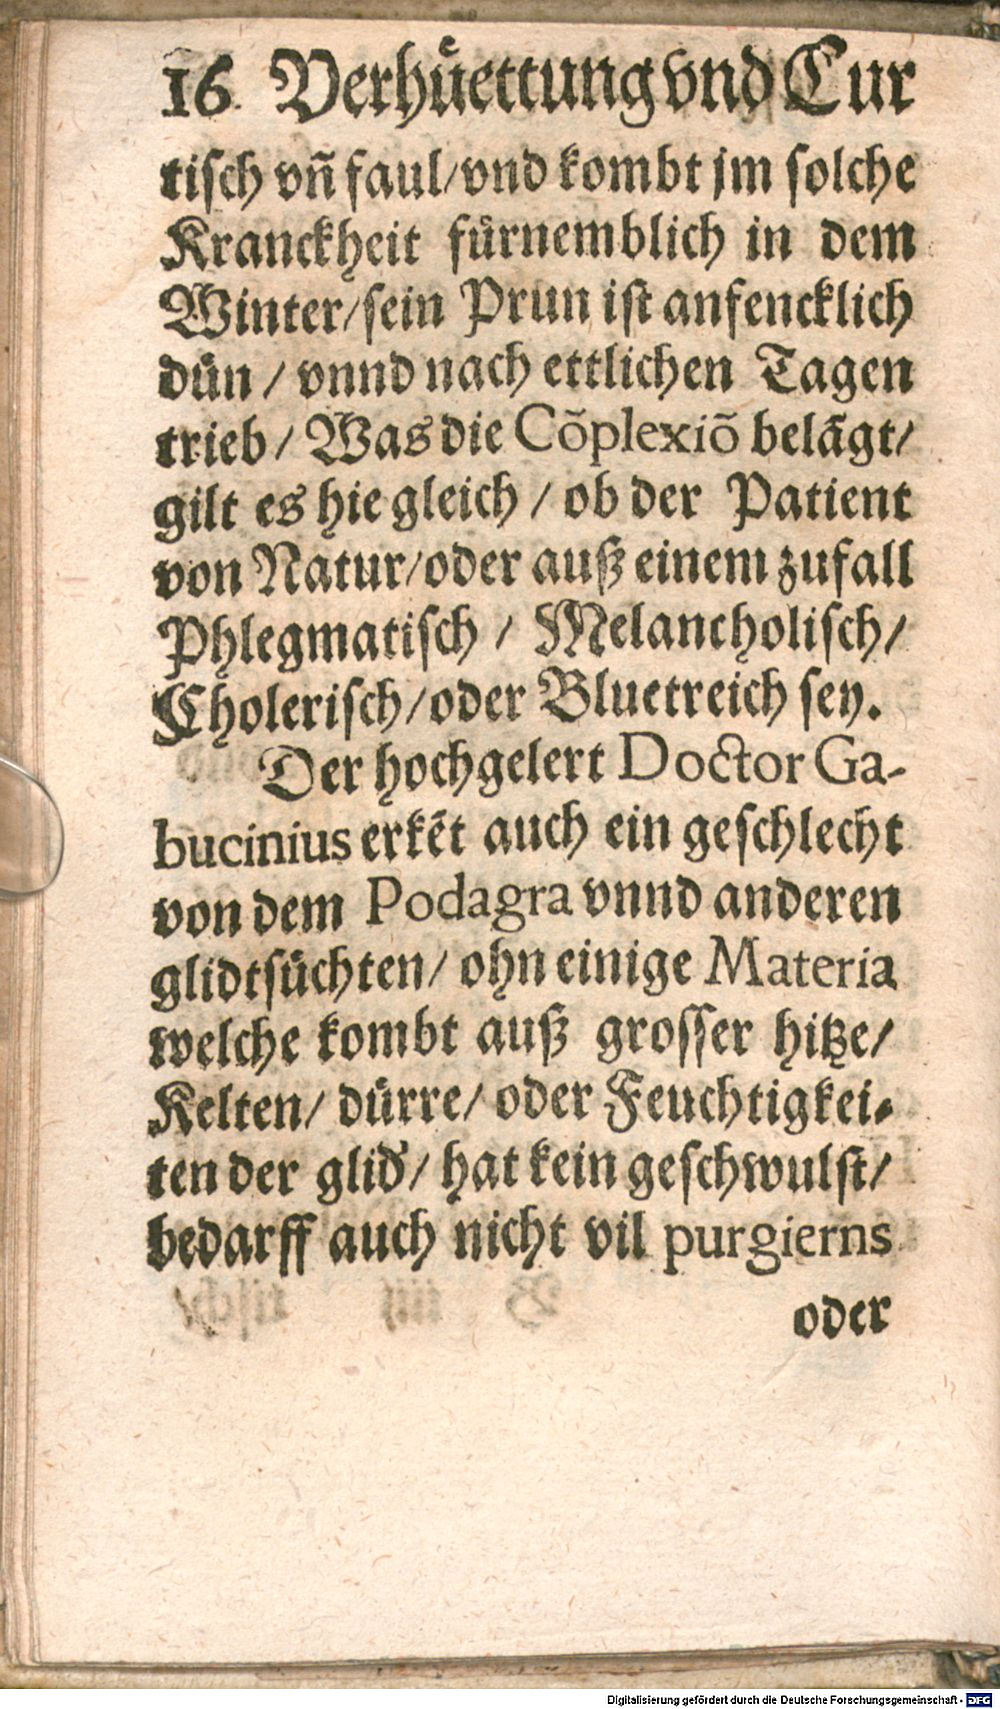 16. Verhüettung vnd Cur
tisch vñ faul/vnd kombt jm solche
Kranckheit fürnemblich in dem
Winter/sein Prun ist anfencklich
dün / vnnd nach ettlichen Tagen
trieb/ Was die Cõplexiõ belãgt/
gilt es hie gleich / ob der Patient
von Natur/oder auß einem zufall
Phlegmatisch / Melancholisch/
Cholerisch/oder Bluetreich sey.
Der hochgelert Doctor Ga-
bucinius erkẽt auch ein geschlecht
von dem Podagra vnnd anderen
glidtsüchten/ ohn einige Materia
welche kombt auß grosser hitze/
Kelten/ dürre/ oder Feuchtigkei-
ten der glid/ hat kein geschwulst/
bedarff auch nicht vil purgierns
oder
Digitalisierung gefördert durch die Deutsche Forschungsgemeinschaft - DFG